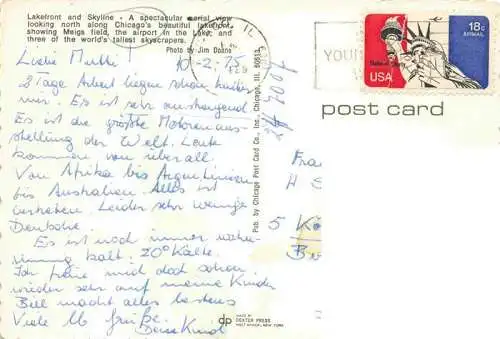 Lakefront and Skyline - A spectacular aerial view
looking north along Chicago's beautiful lakefront,
showing Meigs field, the airport in the Lake; and
three of the world's tallest skyscrapers.
Photo by Jim Doane
Liebe Mutti! 10-2-75
2 Tage Arbeit liegen schon hinter
mir. Es ist sehr anstrengend.
Es ist die größte Motorenaus-
stellung der Welt. Leute
kommen von überall.
Von Afrika bis Argentinien
bis Australien. Alles ist
vertreten. Leider sehr wenige
Deutsche.
Es ist noch immer wahn-
sinnig kalt. 20° Kälte.
Ich freue mich doch schon
wieder sehr auf meine Kinder
Bill macht alles bestens
Viele lb Grüße.
Dein Kind
Pub. by Chicago Post Card Co., Inc., Chicago, Ill. 60613
IL
YOUR
18c
AIRMAIL
Statue of Liberty
USA
post card
Fra
H S
5 Kö
dp
MADE BY
DEXTER PRESS
WEST NYACK, NEW YORK